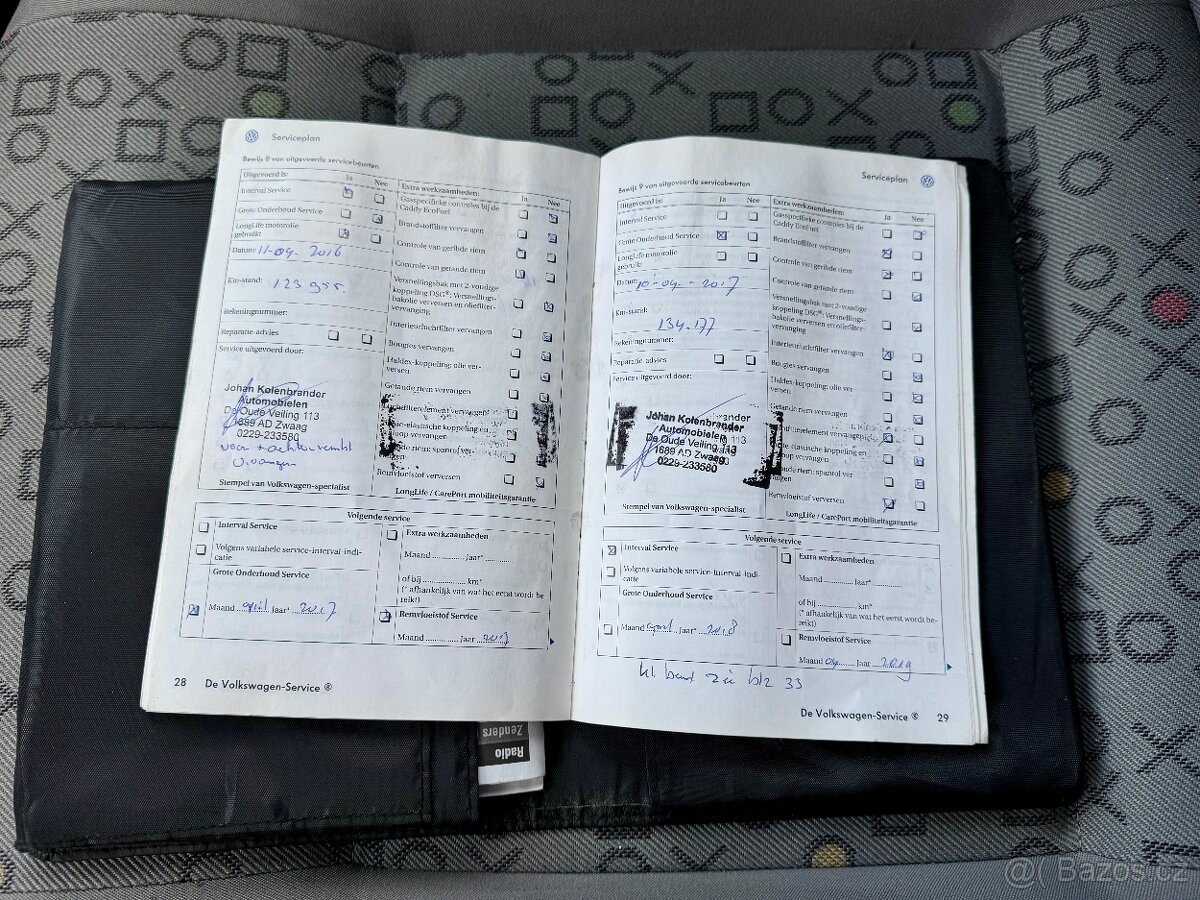 Serviceplan
Bewijs 8 van uitgevoerde servicebeurten
Uitgevoerd is: Ja Nee
Interval Service
Grote Onderhoud Service
LongLife motorolie
gebruikt
Datum: 11-04. 2016
Km-stand: 123 955.
Rekeningnummer:
Reparatie-advies
Service uitgevoerd door:
Johan Kolenbrander
Automobielen
De Oude Veiling 113
1689 AD Zwaag
0229-233580
Stempel van Volkswagen-specialist
Extra werkzaamheden: Ja Nee
Gasspecifieke controles bij de
Caddy EcoFuel
Brandstoffilter vervangen
Controle van geribde riem
Controle van getande riem
Versnellingsbak met 2-voudige
koppeling DSG®: Versnellings-
bakolie verversen en oliefilter-
vervanging
Interieurluchtfilter vervangen
Bougies vervangen
Haldex-koppeling: olie ver-
versen
Getande riem vervangen
filterelement vervangen
elastische koppeling en
loop vervangen
riem: spanrol ver-
vangen
Remvloeistof verversen
LongLife / CarePort mobiliteitsgarantie
Volgende service
Interval Service
Volgens variabele service-interval-indi-
catie
Grote Onderhoud Service
Maand april Jaar* 2017
Extra werkzaamheden
Maand Jaar*
of bij km*
(* afhankelijk van wat het eerst wordt be-
reikt)
Remvloeistof Service
Maand Jaar 2017
28 De Volkswagen-Service ®
Serviceplan
Bewijs 9 van uitgevoerde servicebeurten
Uitgevoerd is: Ja Nee
Interval Service
Grote Onderhoud Service
LongLife motorolie
gebruikt
Datum: 10-04.-2017
Km-stand:
134.177
Rekeningnummer:
Reparatie-advies
Service uitgevoerd door:
Johan Kolenbrander
Automobielen
De Oude Veiling 113
1689 AD Zwaag
0229-233580
Stempel van Volkswagen-specialist
Extra werkzaamheden: Ja Nee
Gasspecifieke controles bij de
Caddy EcoFuel
Brandstoffilter vervangen
Controle van geribde riem
Controle van getande riem
Versnellingsbak met 2-voudige
koppeling DSG®: Versnellings-
bakolie verversen en oliefilter-
vervanging
Interieurluchtfilter vervangen
Bougies vervangen
Haldex-koppeling: olie ver-
versen
Getande riem vervangen
filterelement vervangen
elastische koppeling en
loop vervangen
riem: spanrol ver-
vangen
Remvloeistof verversen
LongLife / CarePort mobiliteitsgarantie
Volgende service
Interval Service
Volgens variabele service-interval-indi-
catie
Grote Onderhoud Service
Maand april Jaar* 2018
Extra werkzaamheden
Maand Jaar*
of bij km*
(* afhankelijk van wat het eerst wordt be-
reikt)
Remvloeistof Service
Maand 04 Jaar 2019
kl. beurt zie blz 33
De Volkswagen-Service ® 29
Radio
Zenders
@( Bazos.cz